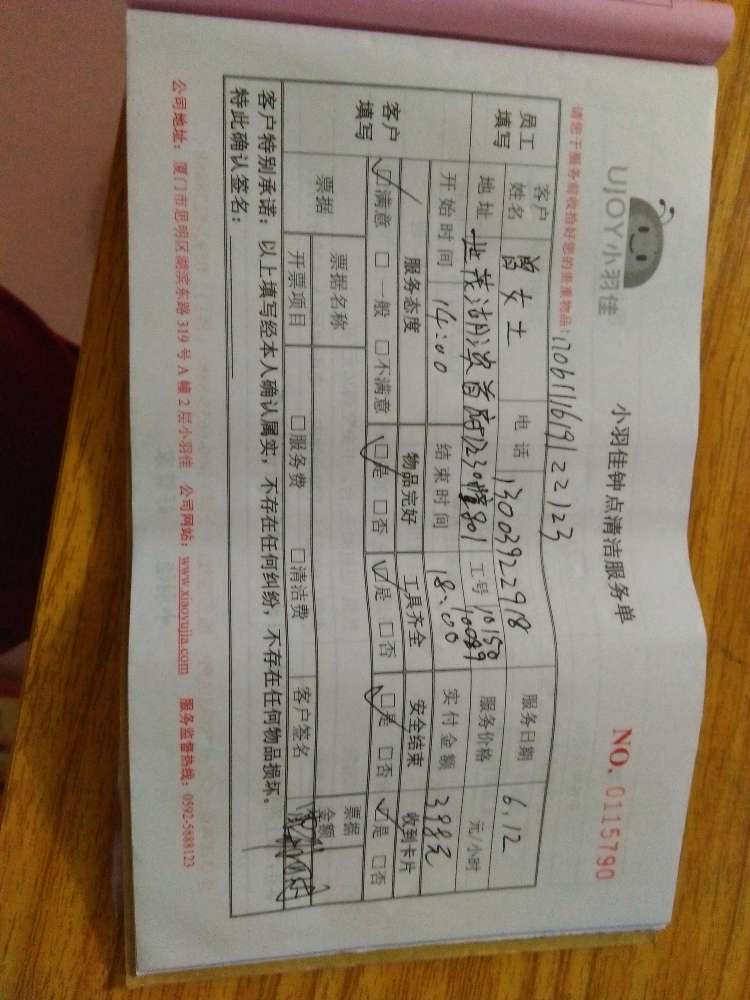 UJOY小羽佳
小羽佳钟点清洁服务单
NO. 0115790
请您于服务前收拾好您的贵重物品!
120611161912 2123
员工填写
客户姓名 曾女士 电话 13003922918 服务日期 6.12
地址 世茂湖滨首府 30幢801 工号 10150 10089 服务价格 元/小时
开始时间 14:00 结束时间 18:00 实付金额 398元
客户填写
服务态度 物品完好 工具齐全 安全结束 收到卡片
☑满意 □一般 □不满意 ☑是 □否 ☑是 □否 ☑是 □否 ☑是 □否
票据 票据名称 票据金额
开票项目 □服务费 □清洁费 客户签名
客户特别承诺:以上填写经本人确认属实,不存在任何纠纷,不存在任何物品损坏。
特此确认签名:
公司地址:厦门市思明区湖滨东路319号A幢2层小羽佳 公司网站:www.xiaoyujia.com 服务监督热线:0592-5888123